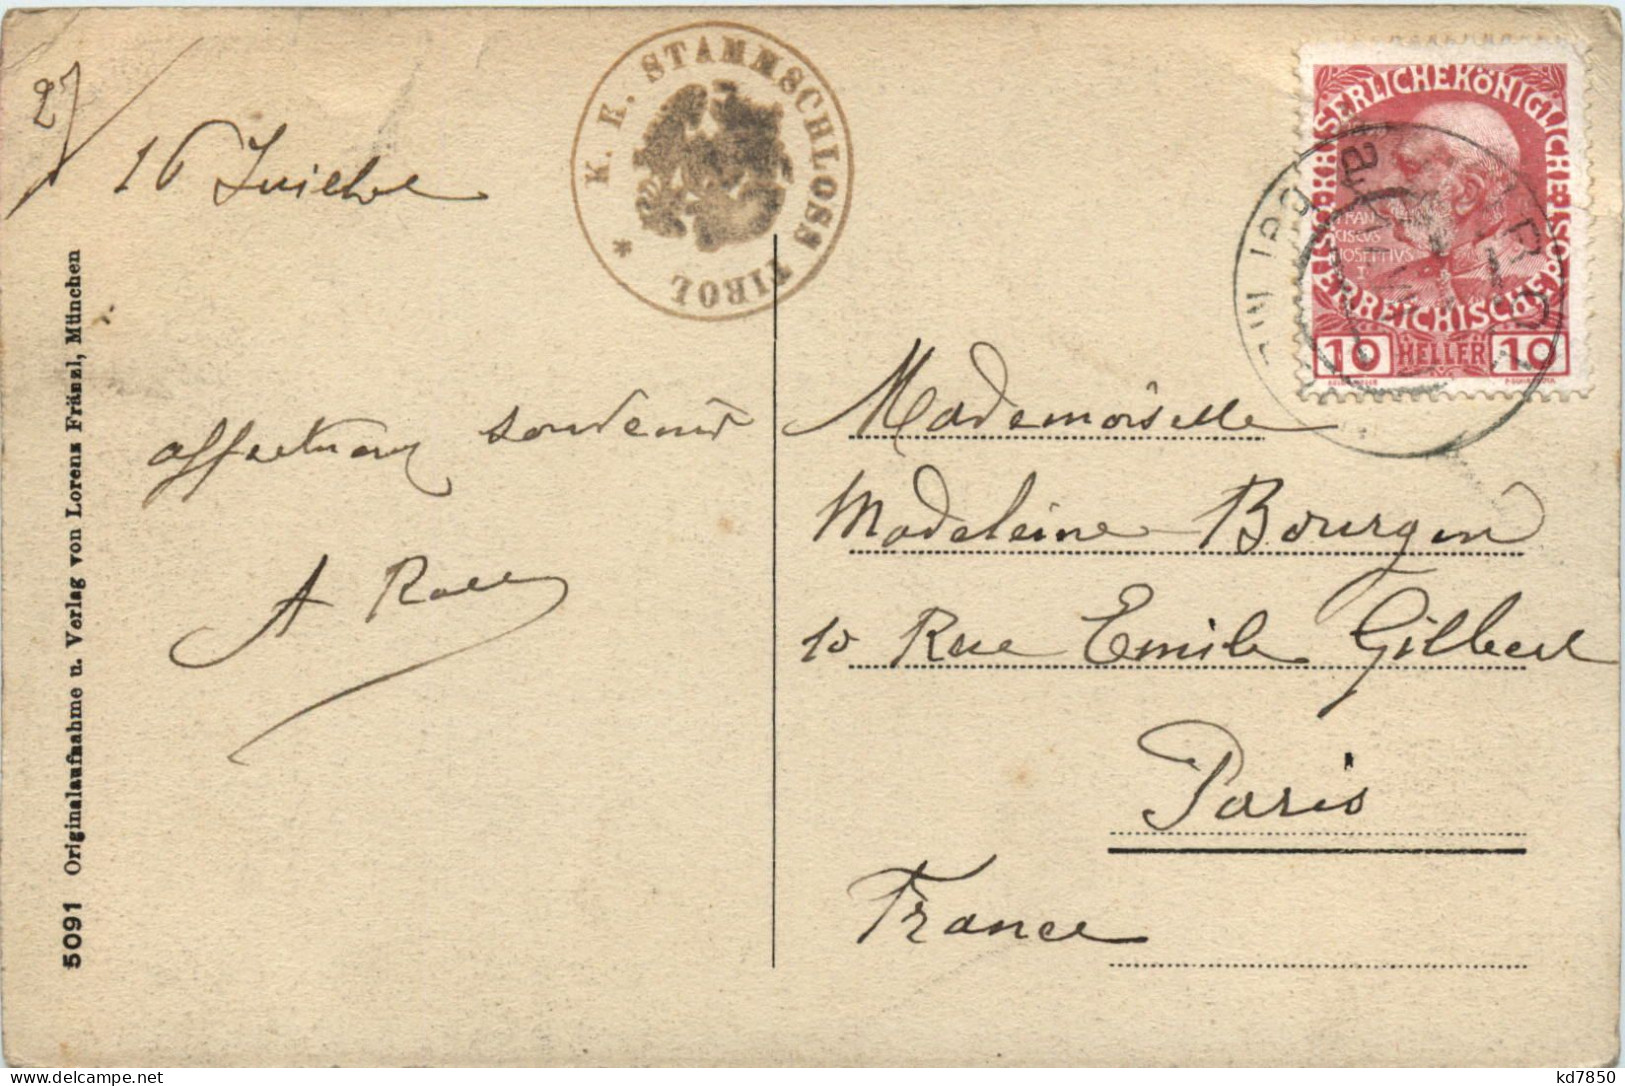 27
16 Juillet
K. K. STAMMSCHLOSS TIROL *
KAISERLICHE KÖNIGLICHE ÖSTERREICHISCHE POST
FRAN
CISCVS
IOSEPHVS
I
10 HELLER 10
a
affectueux souvenir
A
Mademoiselle
Madeleine Bourgin
10 Rue Emile Gilbert
Paris
France
5091 Originalaufnahme u. Verlag von Lorenz Fränzl, München
kd7850